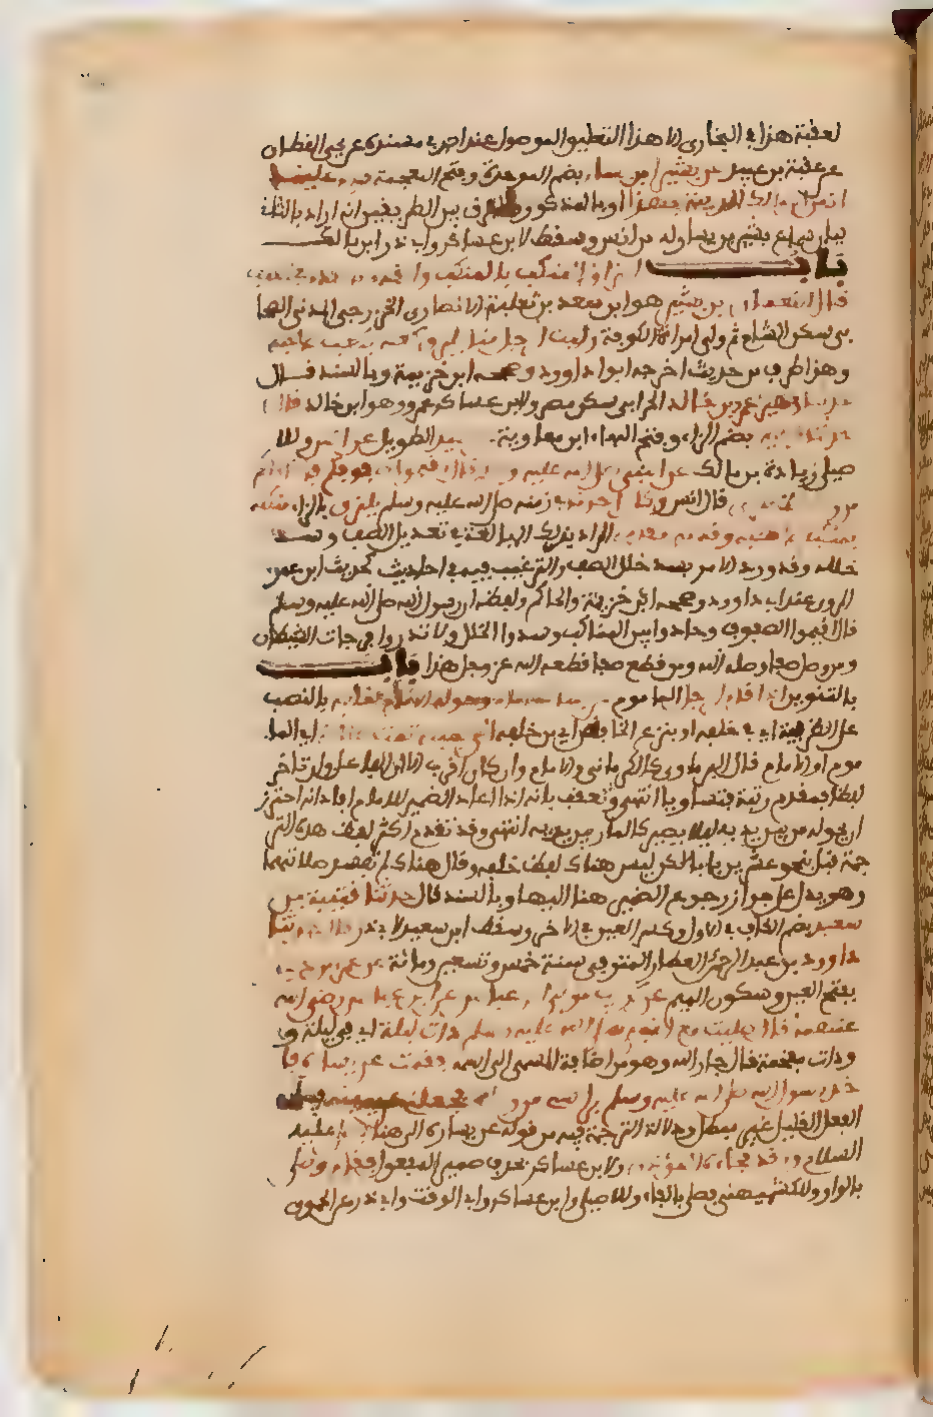 لعقبة هذا في البخاري الا هذا التعليق الموصول عند احمد في مسنده عن يحيى القطان
عن عقبة بن عبيد عن بشير ابن يسار بضم الموحدة وفتح المعجمة
انس ابن مالك المدينة بهذا اي المذكور والفرق بين الطريقين انه اراد بالثاني
بيان سماع بشير بن يسار له من انس وسقط لابن عساكر وابي ذر ابن مالك
باب الزاق المنكب بالمنكب والقدم بالقدم في الصف
قال النعمان بن بشير هو ابن سعد بن ثعلبة الانصاري الخزرجي المدني الصحا
بي سكن الشام ثم ولي امرة الكوفة رايت الرجل منا يلزق كعبه بكعب صاحبه
وهذا طرف من حديث اخرجه ابوا داوود وصححه ابن خزيمة وبالسند قال
حدثنا عمرو بن خالد الحراني سكن مصر ولابن عساكر عمرو وهو ابن خالد قال
حدثنا زهير بضم الزاء وفتح الهاء ابن معاوية حميد الطويل عن انس وللا
صيلي زيادة بن مالك عن النبي صلى الله عليه وسلم قال اقيموا صفوفكم فاني اراكم
من وراء ظهري قال انس وكان احدنا في زمنه صلى الله عليه وسلم يلزق بالزاء منكبه
بمنكب صاحبه وقدمه بقدمه المراد بذلك المبالغة في تعديل الصف وسد
خلله وقد ورد الامر بسد خلل الصف والترغيب فيه في احاديث كحديث ابن عمر
المروي عند ابي داوود وصححه ابن خزيمة والحاكم ولفظه ان رسول الله صلى الله عليه وسلم
قال اقيموا الصفوف وحاذوا بين المناكب وسدوا الخلل ولا تذروا فرجات للشيطان
ومن وصل صفا وصله الله ومن قطع صفا قطعه الله عز وجل هذا باب
بالتنوين اذا قام الرجل الماموم عن يسار الامام وحوله الامام خلفه بالنصب
على الظرفية اي في خلفه او بنزع الخافض اي من خلفه الى يمينه تمت صلاته اي الما
موم او الامام قال البرماوي كالكرماني والامام وان كان اقرب الا ان الفاعل وان تاخر
لفظا فمقدم رتبة فتساويا انتهى وتعقب بانه اذا اعاد الضمير للامام افاد انه احترز
ان يحوله من بين يديه ليلا يصير كالمار بين يديه انتهى وقد تقدم اكثر لفظ هذه التر
جمة قبل بنحو عشرين بابا لكن ليس هناك لفظ خلفه وقال هناك لم تفسد صلاتهما
وهو يدل على جواز رجوع الضمير هنا اليهما وبالسند قال حدثنا قتيبة بن
سعيد بضم القاف في الاول وكسر العين في الاخر وسقط ابن سعيد لابي ذر قال حدثنا
داوود بن عبد الرحمن العطار المتوفى سنة خمس وتسعين ومائة عن عمرو بن دينار
بفتح العين وسكون الميم عن كريب مولى ابن عباس عن ابن عباس رضي الله
عنهما قال صليت مع النبي صلى الله عليه وسلم ذات ليلة اي في ليلة
وذات مقحمة قال جار الله وهو من اضافة المسمى الى اسمه فقمت عن يساره فا
خذ رسول الله صلى الله عليه وسلم براسي من ورائي فجعلني عن يمينه
الفعل القليل غير مبطل ودلالة الترجمة فيه من قوله عن يساره الى هنا عليه
السلام ورقد فجاءه المؤذن ولابن عساكر بحذف ضمير المفعول فقام وصلى
بالواو وللكشميهني يصلي بالياء وللاصيلي وابن عساكر وابي الوقت وابي ذر عن الحموي